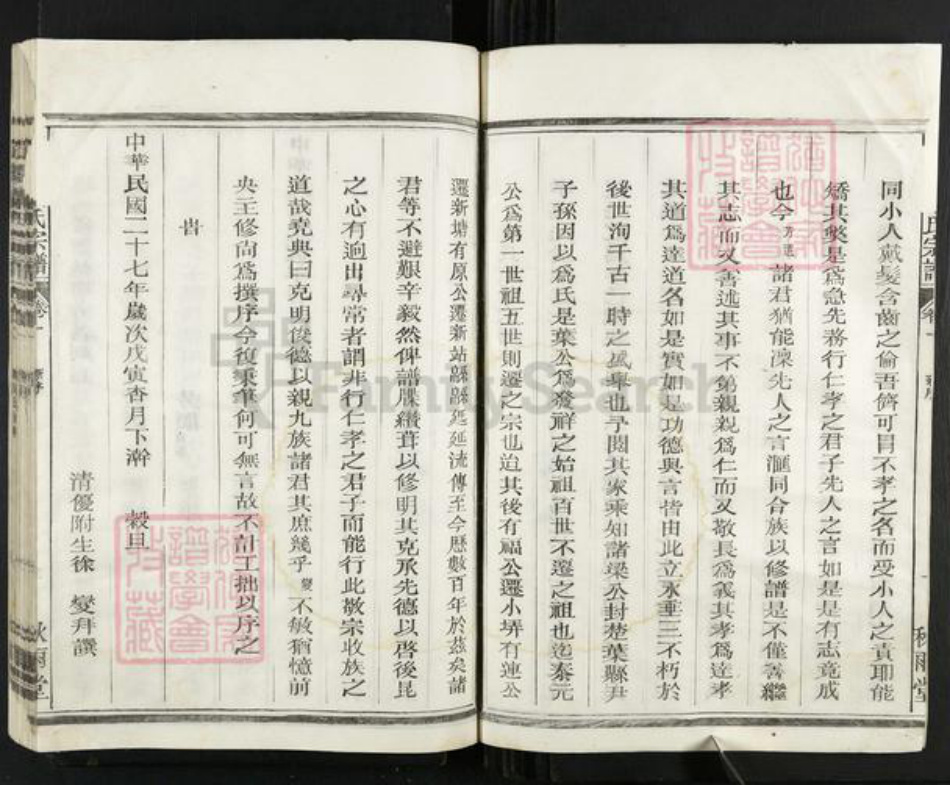 同小人戴髮含齒之倫吾儕可冒不孝之名而受小人之責耶能
矯其獘是爲急先務行仁孝之君子先人之言如是是有志竟成
也今諸君猶能凜先人之言滙同合族以修譜是不僅善繼
其志而又善述其事不第親親爲仁而又敬長爲義其孝爲達孝
其道爲達道名如是實如是功德與言皆由此立永垂三不朽於
後世洵千古一時之盛舉也予閱其家乘知諸梁公封楚葉縣尹
子孫因以爲氏是葉公爲發祥之始祖百世不遷之祖也迄泰元
公爲第一世祖五世則遷之宗也迨其後有福公遷小坪有連公
遷新塘有原公遷新站緜緜延延流傳至今歷數百年於茲矣諸
君等不避艱辛毅然俾譜牒纘葺以修明其克承先德以啓後昆
之心有逈出尋常者謂非行仁孝之君子而能行此敬宗收族之
道哉堯典曰克明俊德以親九族諸君其庶幾乎燮不敏猶憶前
央主修尙爲撰序今復秉筆何可無言故不計工拙以序之
旹
中華民國二十七年歲次戊寅杏月下澣　榖旦
清優附生徐　燮拜譔
氏宗譜
卷一
秋雨堂
氏宗譜
卷一
秋雨堂
FamilySearch